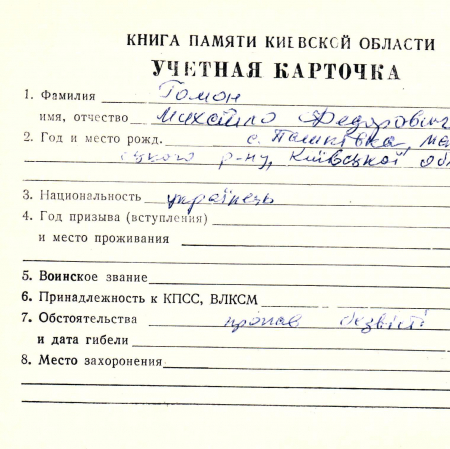 КНИГА ПАМЯТИ КИЕВСКОЙ ОБЛАСТИ
УЧЕТНАЯ КАРТОЧКА
1. Фамилия Гомон
имя, отчество Михайло Федорович
2. Год и место рожд. с. Пашківка, Ма
р-ну, Київської об
3. Национальность українець
4. Год призыва (вступления)
и место проживания
5. Воинское звание
6. Принадлежность к КПСС, ВЛКСМ
7. Обстоятельства пропав безвісті
и дата гибели
8. Место захоронения